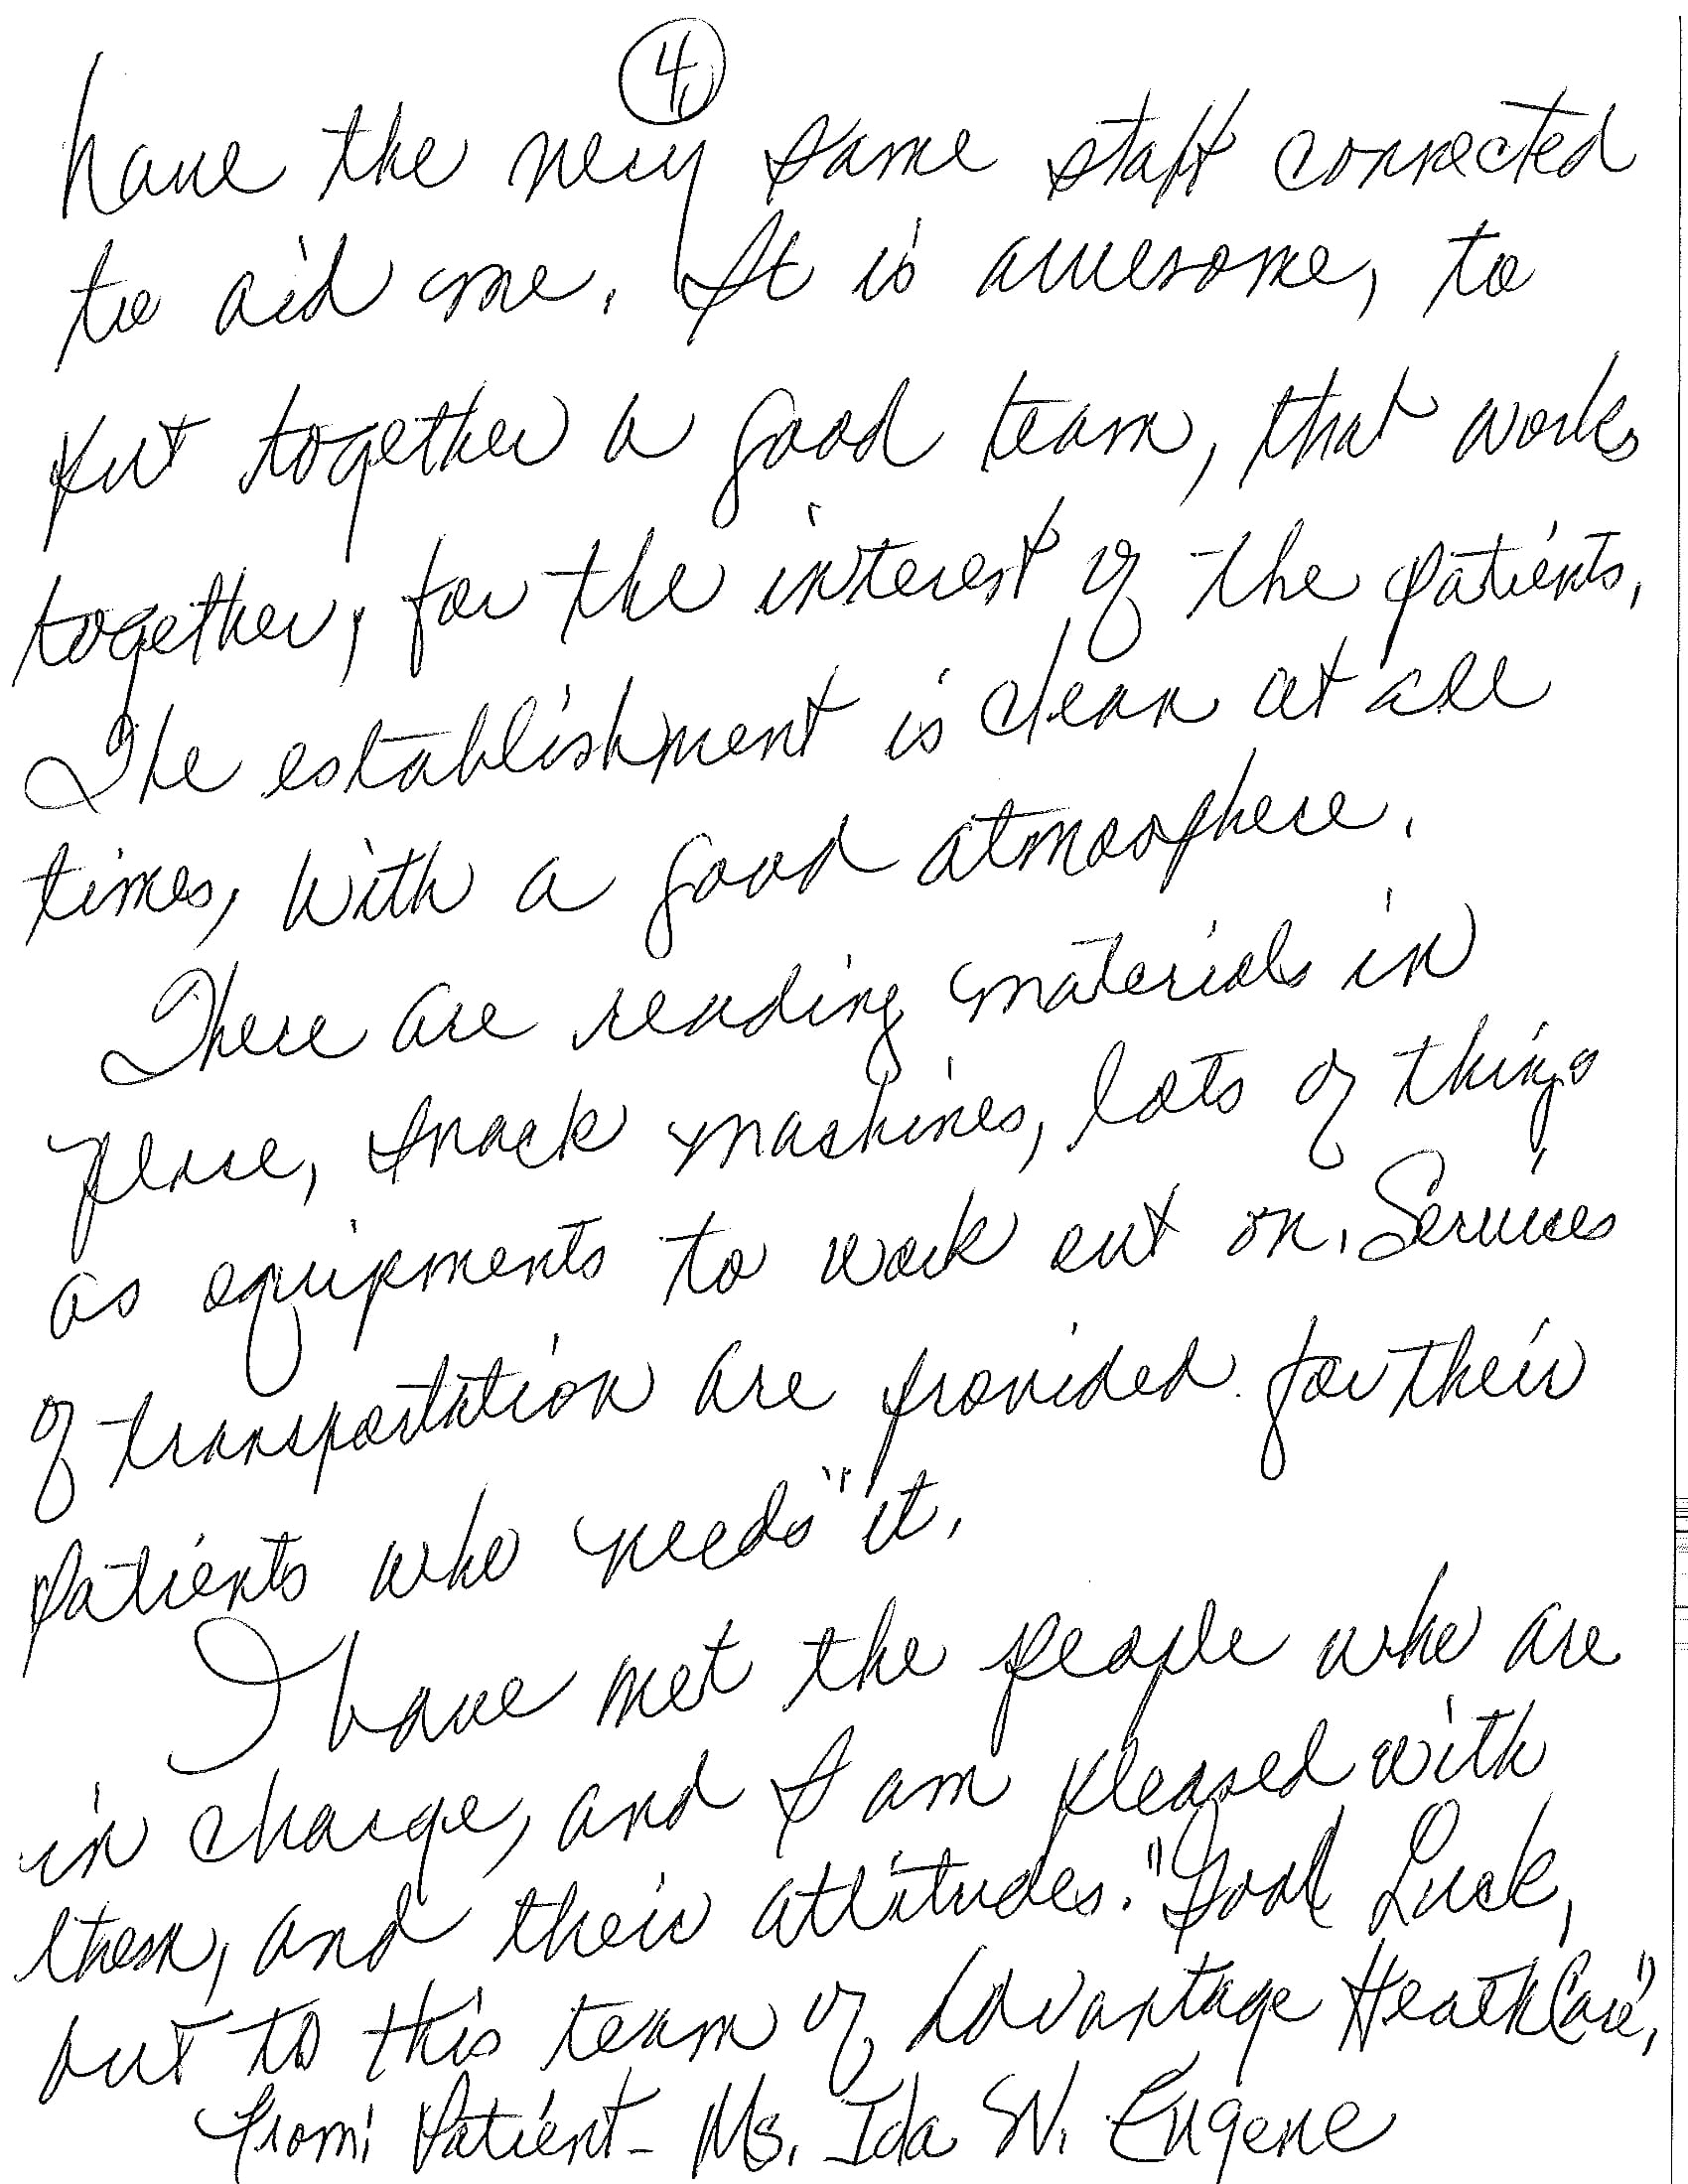 4.
have the very same staff connected
to aid me. It is awesome, to
put together a good team, that works
together, for the interest of the patients,
The establishment is clean at all
times, with a good atmosphere.
There are reading materials in
place, snack mashines, lots of things
as equipments to work out on. Services
of transportation are provided for their
patients who needs "it.
I have met the people who are
in charge, and I am pleased with
them, and their attitudes. "Good Luck,
out to this team of Advantage HealthCare",
From: Patient - Ms. Ida W. Eugene